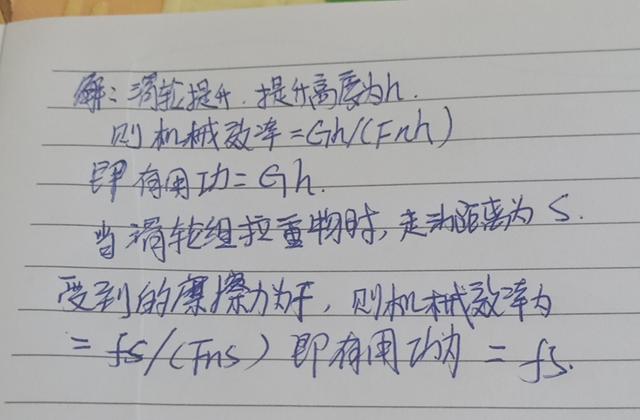 解：滑轮提升．提升高度为h．
则机械效率=Gh/(Fnh)
即有用功=Gh．
当滑轮组拉重物时，走动距离为S．
受到的摩擦力为f，则机械效率为
=fs/(Fns) 即有用功为=fs．